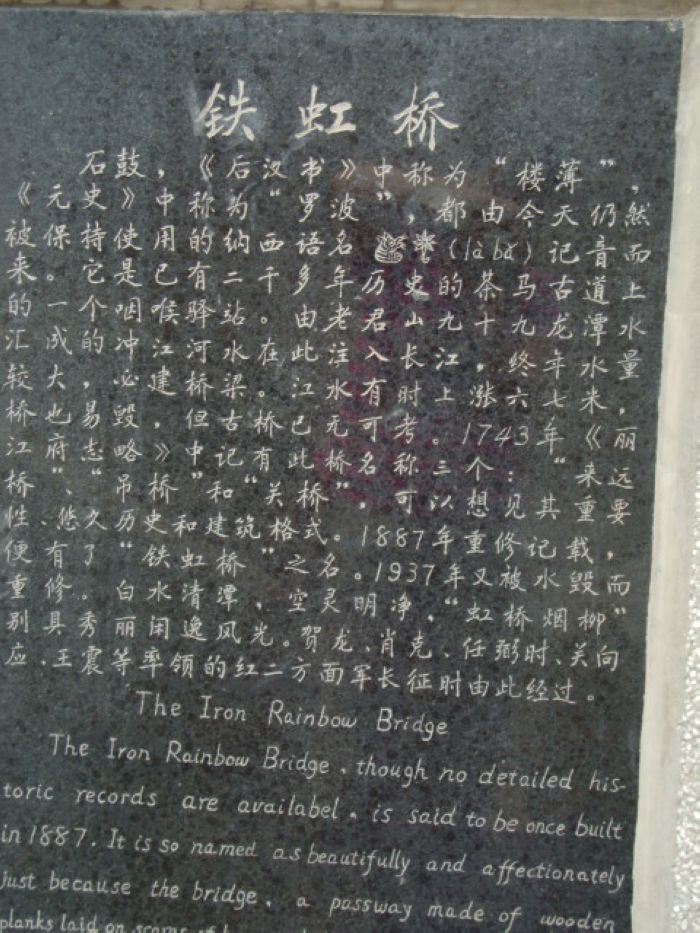 铁虹桥
石鼓，《后汉书》中称为“楼薄”，
《元史》中称为“罗波”，都由今天仍然
被保持使用的纳西语名(là bā)记音而
来。它是已有二千多年历史的茶马古道上
的一个咽喉驿站。由老君山九十九龙潭水
汇成的冲江河水在此注入长江，终年水量
较大，必建桥梁。此江水有时上涨六七米，
桥也易毁，但古桥已无可考。1743年《丽
江府志略》中记有此桥名称三个：“来远
桥”、“吊桥”和“关桥”，可以想见其重要
性、悠久历史和建筑格式。1887年重修记载，
便有了“铁虹桥”之名。1937年又被水毁而
重修。白水清潭，空灵明净，“虹桥烟柳”
别具秀丽闲逸风光。贺龙、肖克、任弼时、关向
应、王震等率领的红二方面军长征时由此经过。
The Iron Rainbow Bridge
The Iron Rainbow Bridge, though no detailed his-
toric records are availabel, is said to be once built
in 1887. It is so named as beautifully and affectionately
just because the bridge, a passway made of wooden
planks laid on scores of